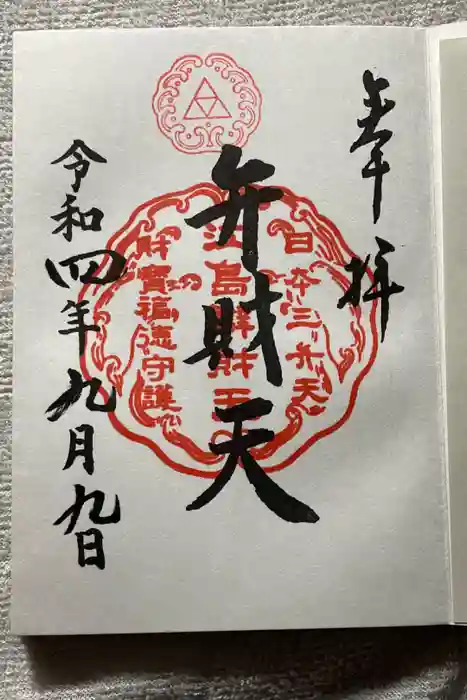 奉拝
日本三弁天
弁財天
江島辨財天
財寳福徳守護
令和四年九月九日